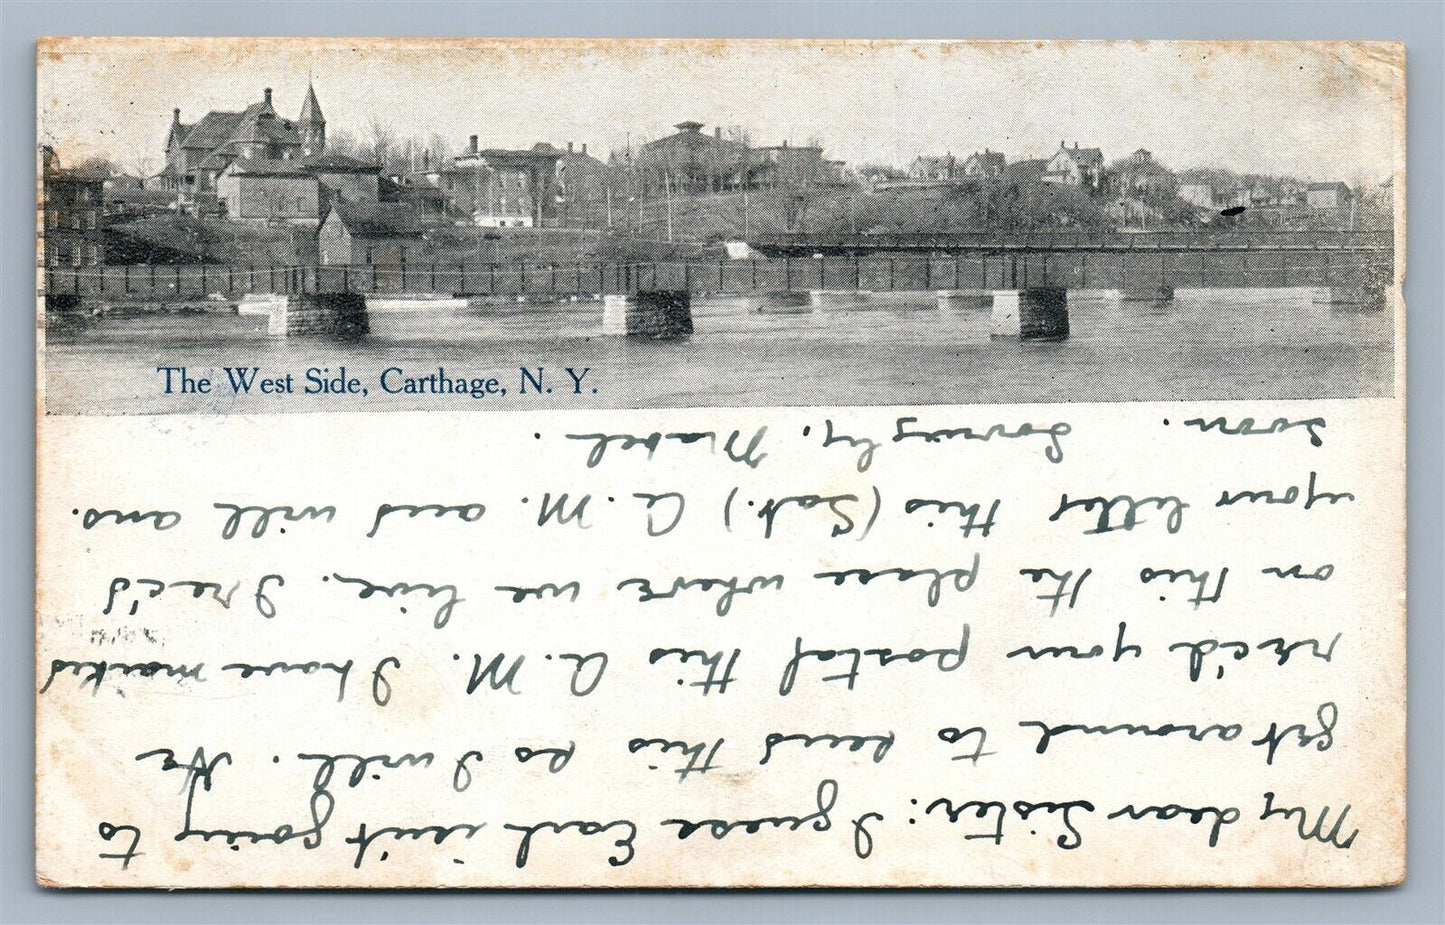 The West Side, Carthage, N. Y.
My dear Sister: I guess Earl isn't going to
get around to send this so I will. We
rec'd your postal this A. M. I have marked
on this the place where we live. I rec'd
your letter this (Sat.) A. M. and will ans.
soon. Lovingly, Mabel.